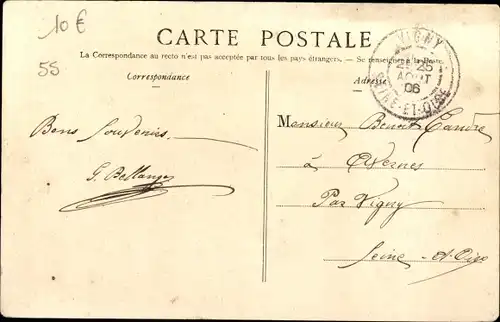 10 €
55
CARTE POSTALE
La Correspondance au recto n'est pas acceptée par tous les pays étrangers. — Se renseigner à la Poste.
Correspondance
Adresse
VIGNY
25
AOUT
06
SEINE-ET-OISE
Bons Souvenirs
G. Bellanger
Monsieur Benoit
à Avernes
Par Vigny
Seine-et-Oise